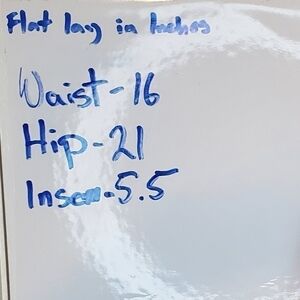 Flat lay in Inches
Waist-16
Hip-21
Inseam-5.5